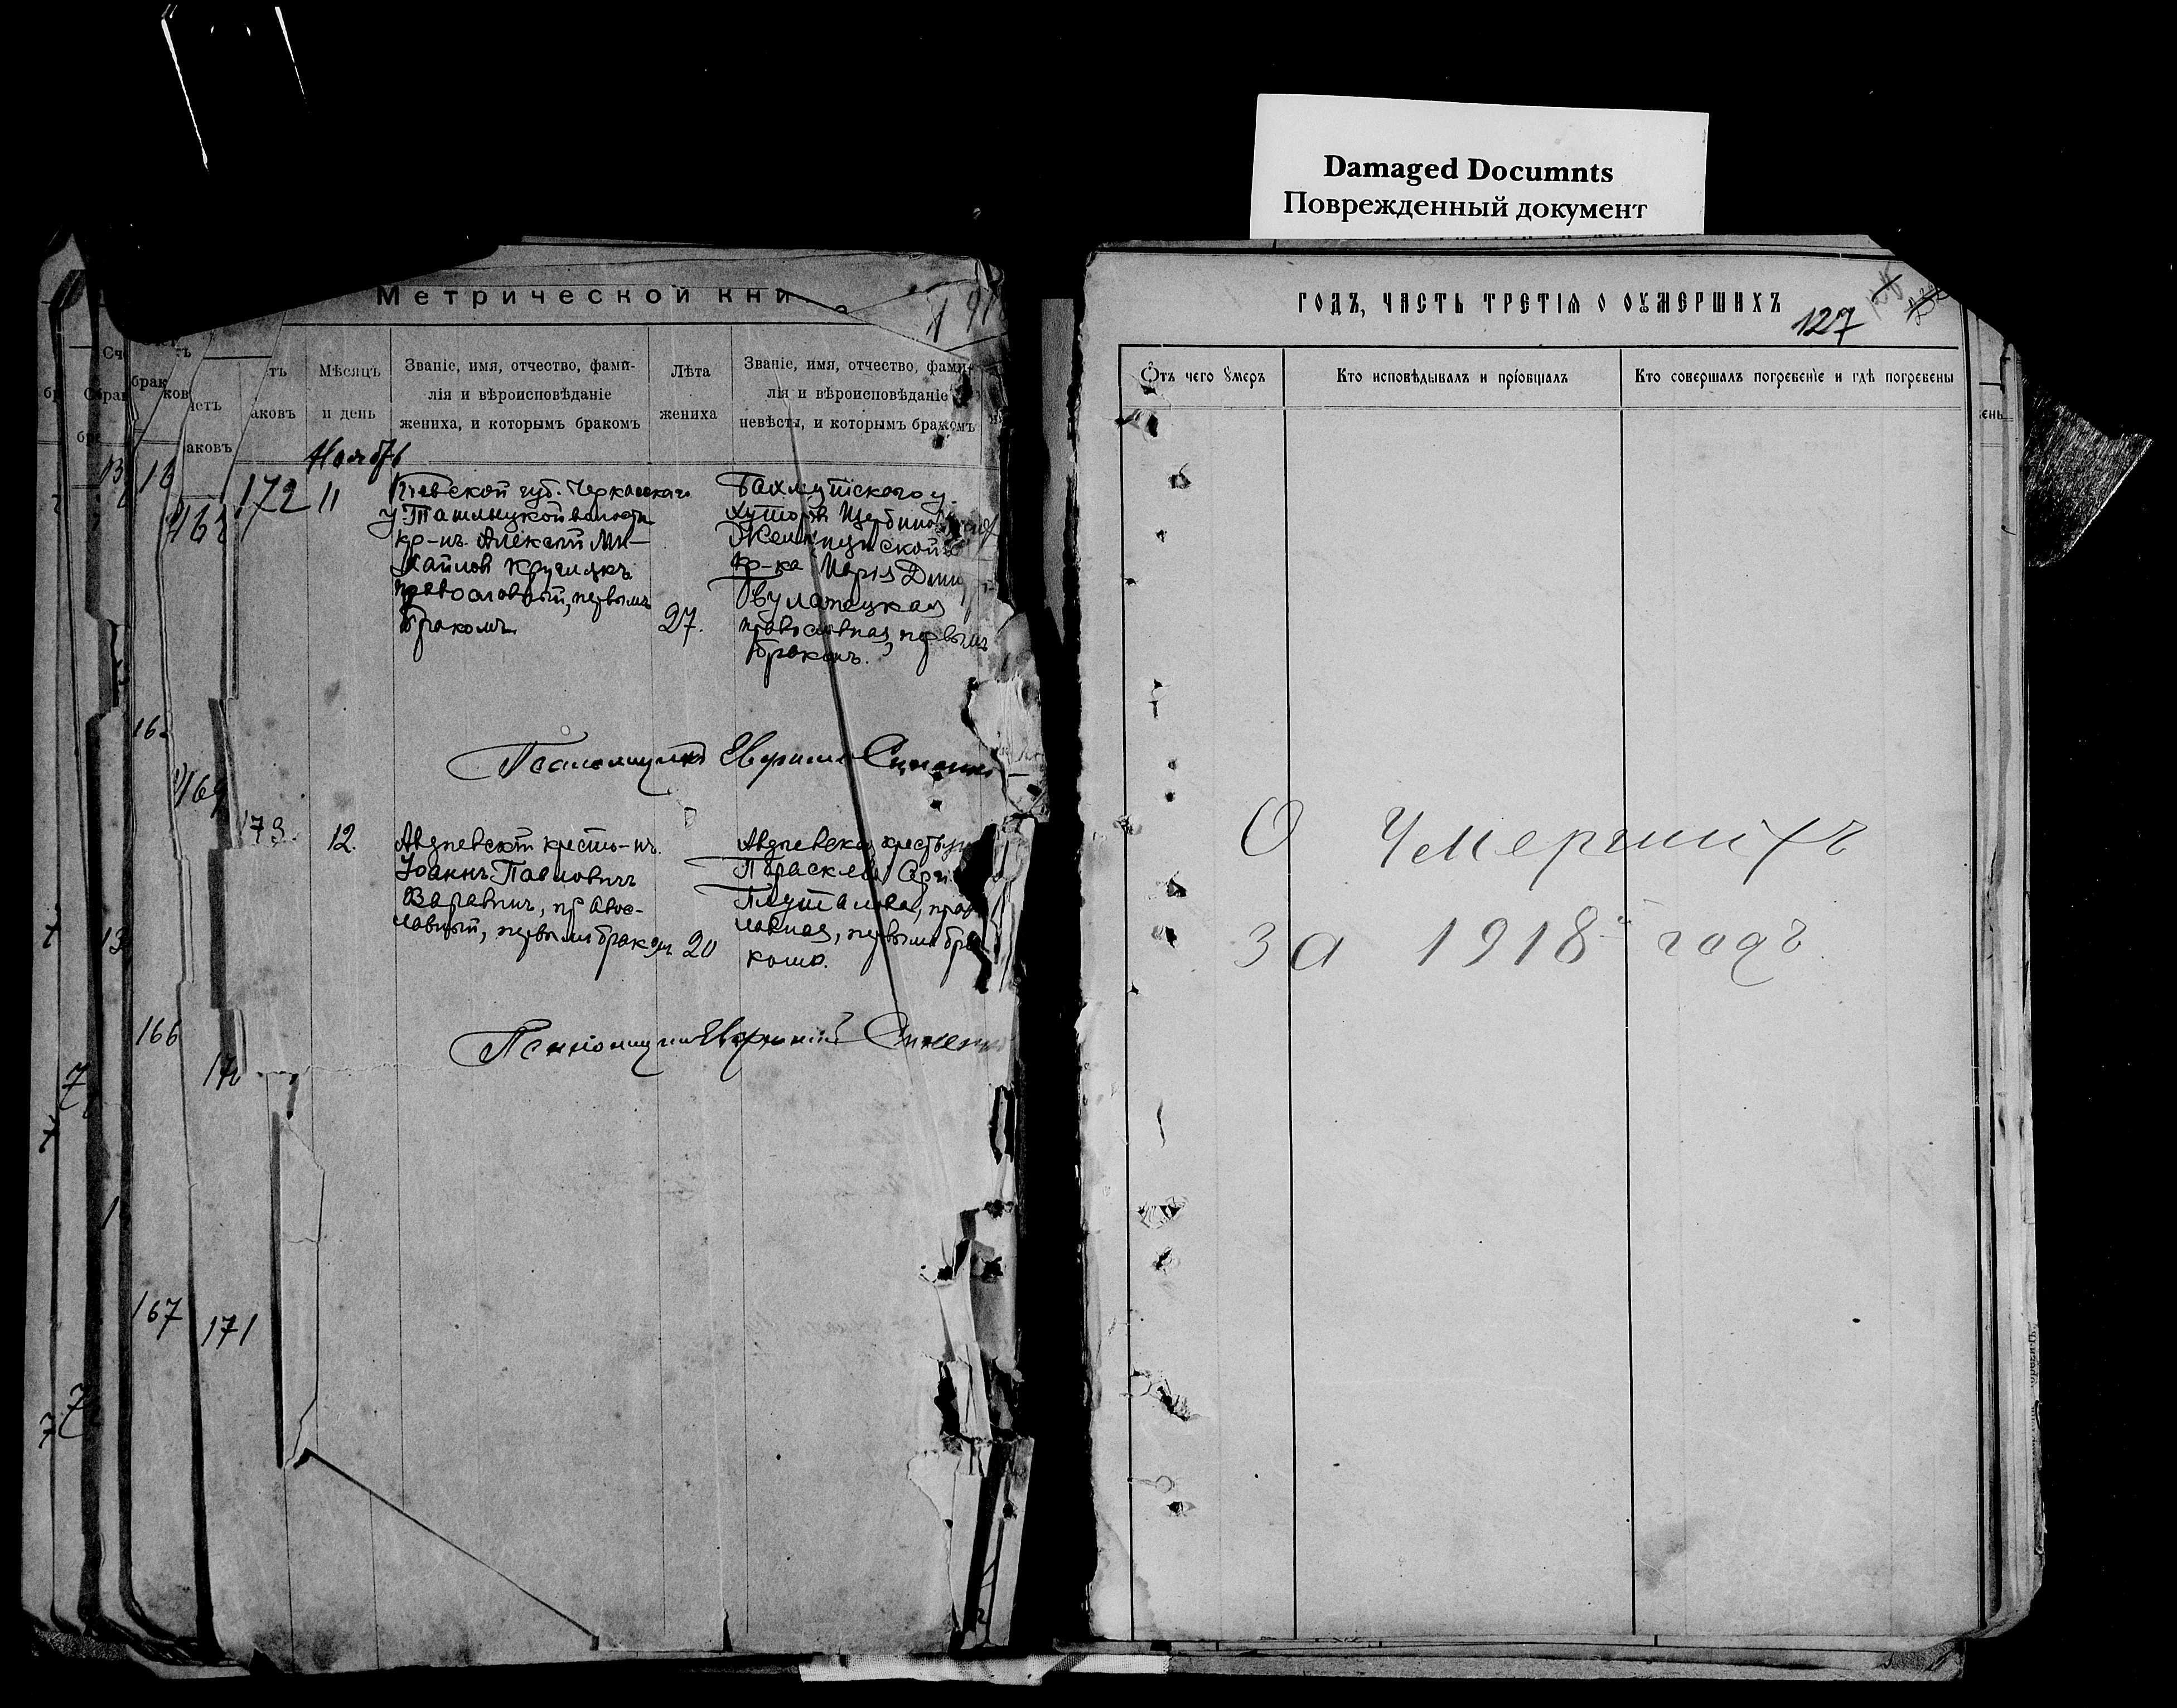 Damaged Documnts
Поврежденный документ
Метрической кни
191
тъ
аковъ
Мѣсяцъ
и день
Званіе, имя, отчество, фами-
лія и вѣроисповѣданіе
жениха, и которымъ бракомъ
Лѣта
жениха
Званіе, имя, отчество, фами-
лія и вѣроисповѣданіе
невѣсты, и которымъ бракомъ
Ноябрь
172
11
Кіевской губ. Черкасскаго
у. Ташлыцкой волости
кр-нъ Алексѣй Ми-
хайловъ Кругликъ
православный, первымъ
бракомъ.
27.
Бахмутскаго у.
Хутора Щербинов
Желѣзнянской
кр-ка Марія Дми
православная, первымъ
бракомъ.
Псаломщикъ Евфимій
173.
12.
Авдѣевскій кресть-нъ
Іоаннъ Павловичъ
православ-
ный, первымъ бракомъ
20
Авдѣевская крестьян
Параскева
первымъ бра-
комъ.
Псаломщикъ Евфимій
168
162
169
166
170
167
171
годъ, часть третія о оумершихъ
127
Отъ чего умеръ
Кто исповѣдывалъ и пріобщалъ
Кто совершалъ погребеніе и гдѣ погребены
О Умершихъ
за 1918 й годъ.